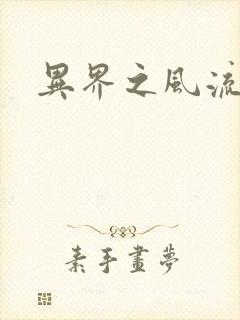 異界之風流
素手畫夢